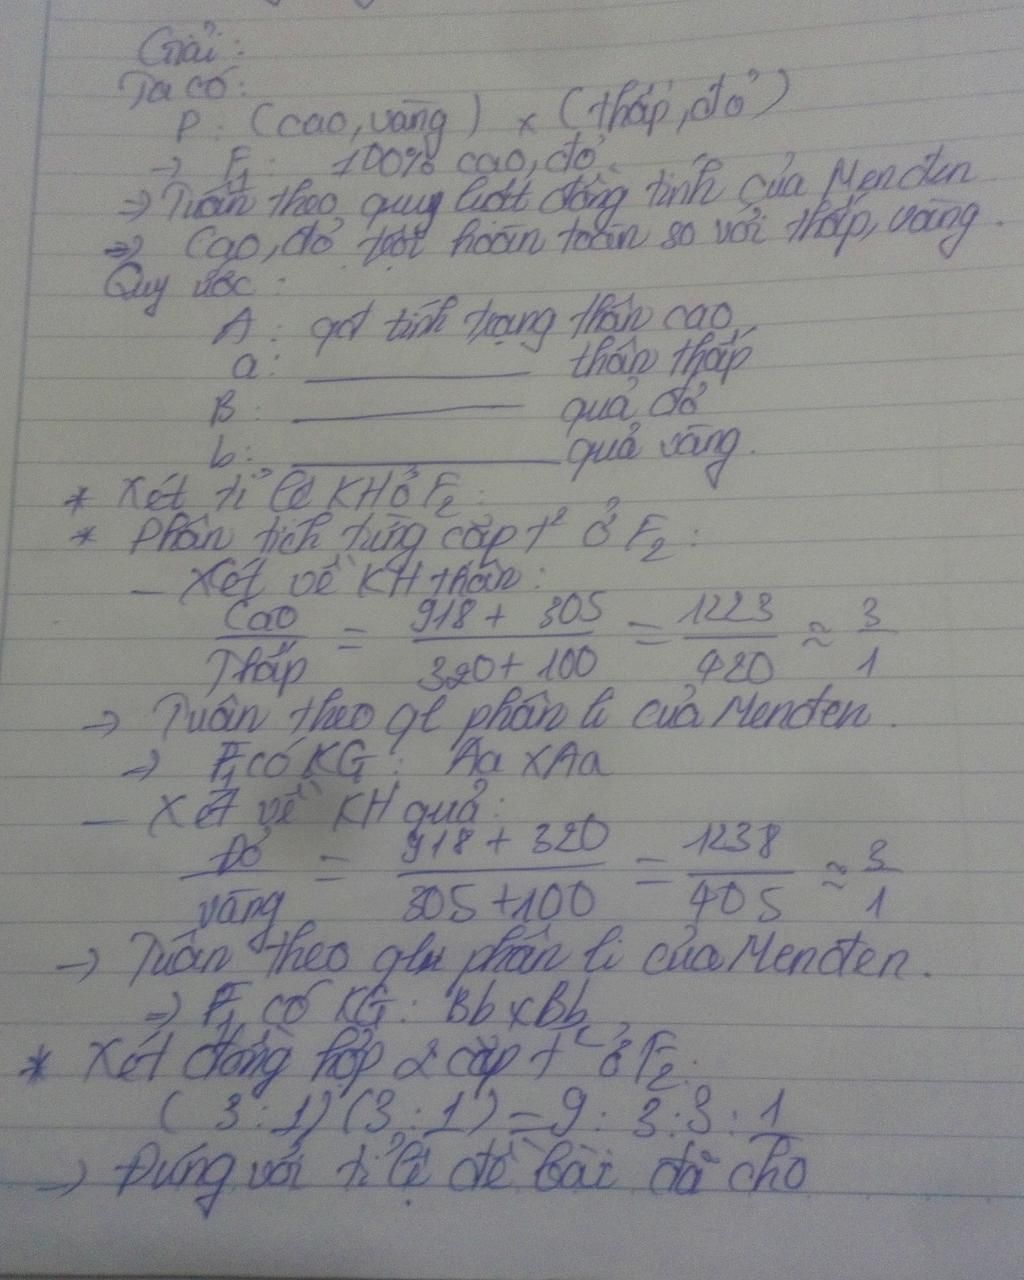 Giải:
Ta có:
P: (cao, vàng) x (thấp, đỏ)
→ F₁: 100% cao, đỏ.
⇒ Tuân theo quy luật đồng tính của Menđen
⇒ Cao, đỏ trội hoàn toàn so với thấp, vàng.
Quy ước:
A: qđ tính trạng thân cao
a: ______ thân thấp
B: ______ quả đỏ
b: ______ quả vàng.
* Xét tỉ lệ KH ở F₂:
* Phân tích từng cặp t² ở F₂:
– Xét về KH thân:
Cao/Thấp = (918 + 305)/(320 + 100) = 1223/420 ≈ 3/1
→ Tuân theo ql phân li của Menđen.
⇒ F₁ có KG: Aa x Aa
– Xét về KH quả:
Đỏ/vàng = (918 + 320)/(305 + 100) = 1238/405 ≈ 3/1
→ Tuân theo ql phân li của Menđen.
⇒ F₁ có KG: Bb x Bb
* Xét đồng hợp 2 cặp t² ở F₂:
(3:1)(3:1) = 9:3:3:1
→ Đúng với tỉ lệ đề bài đã cho